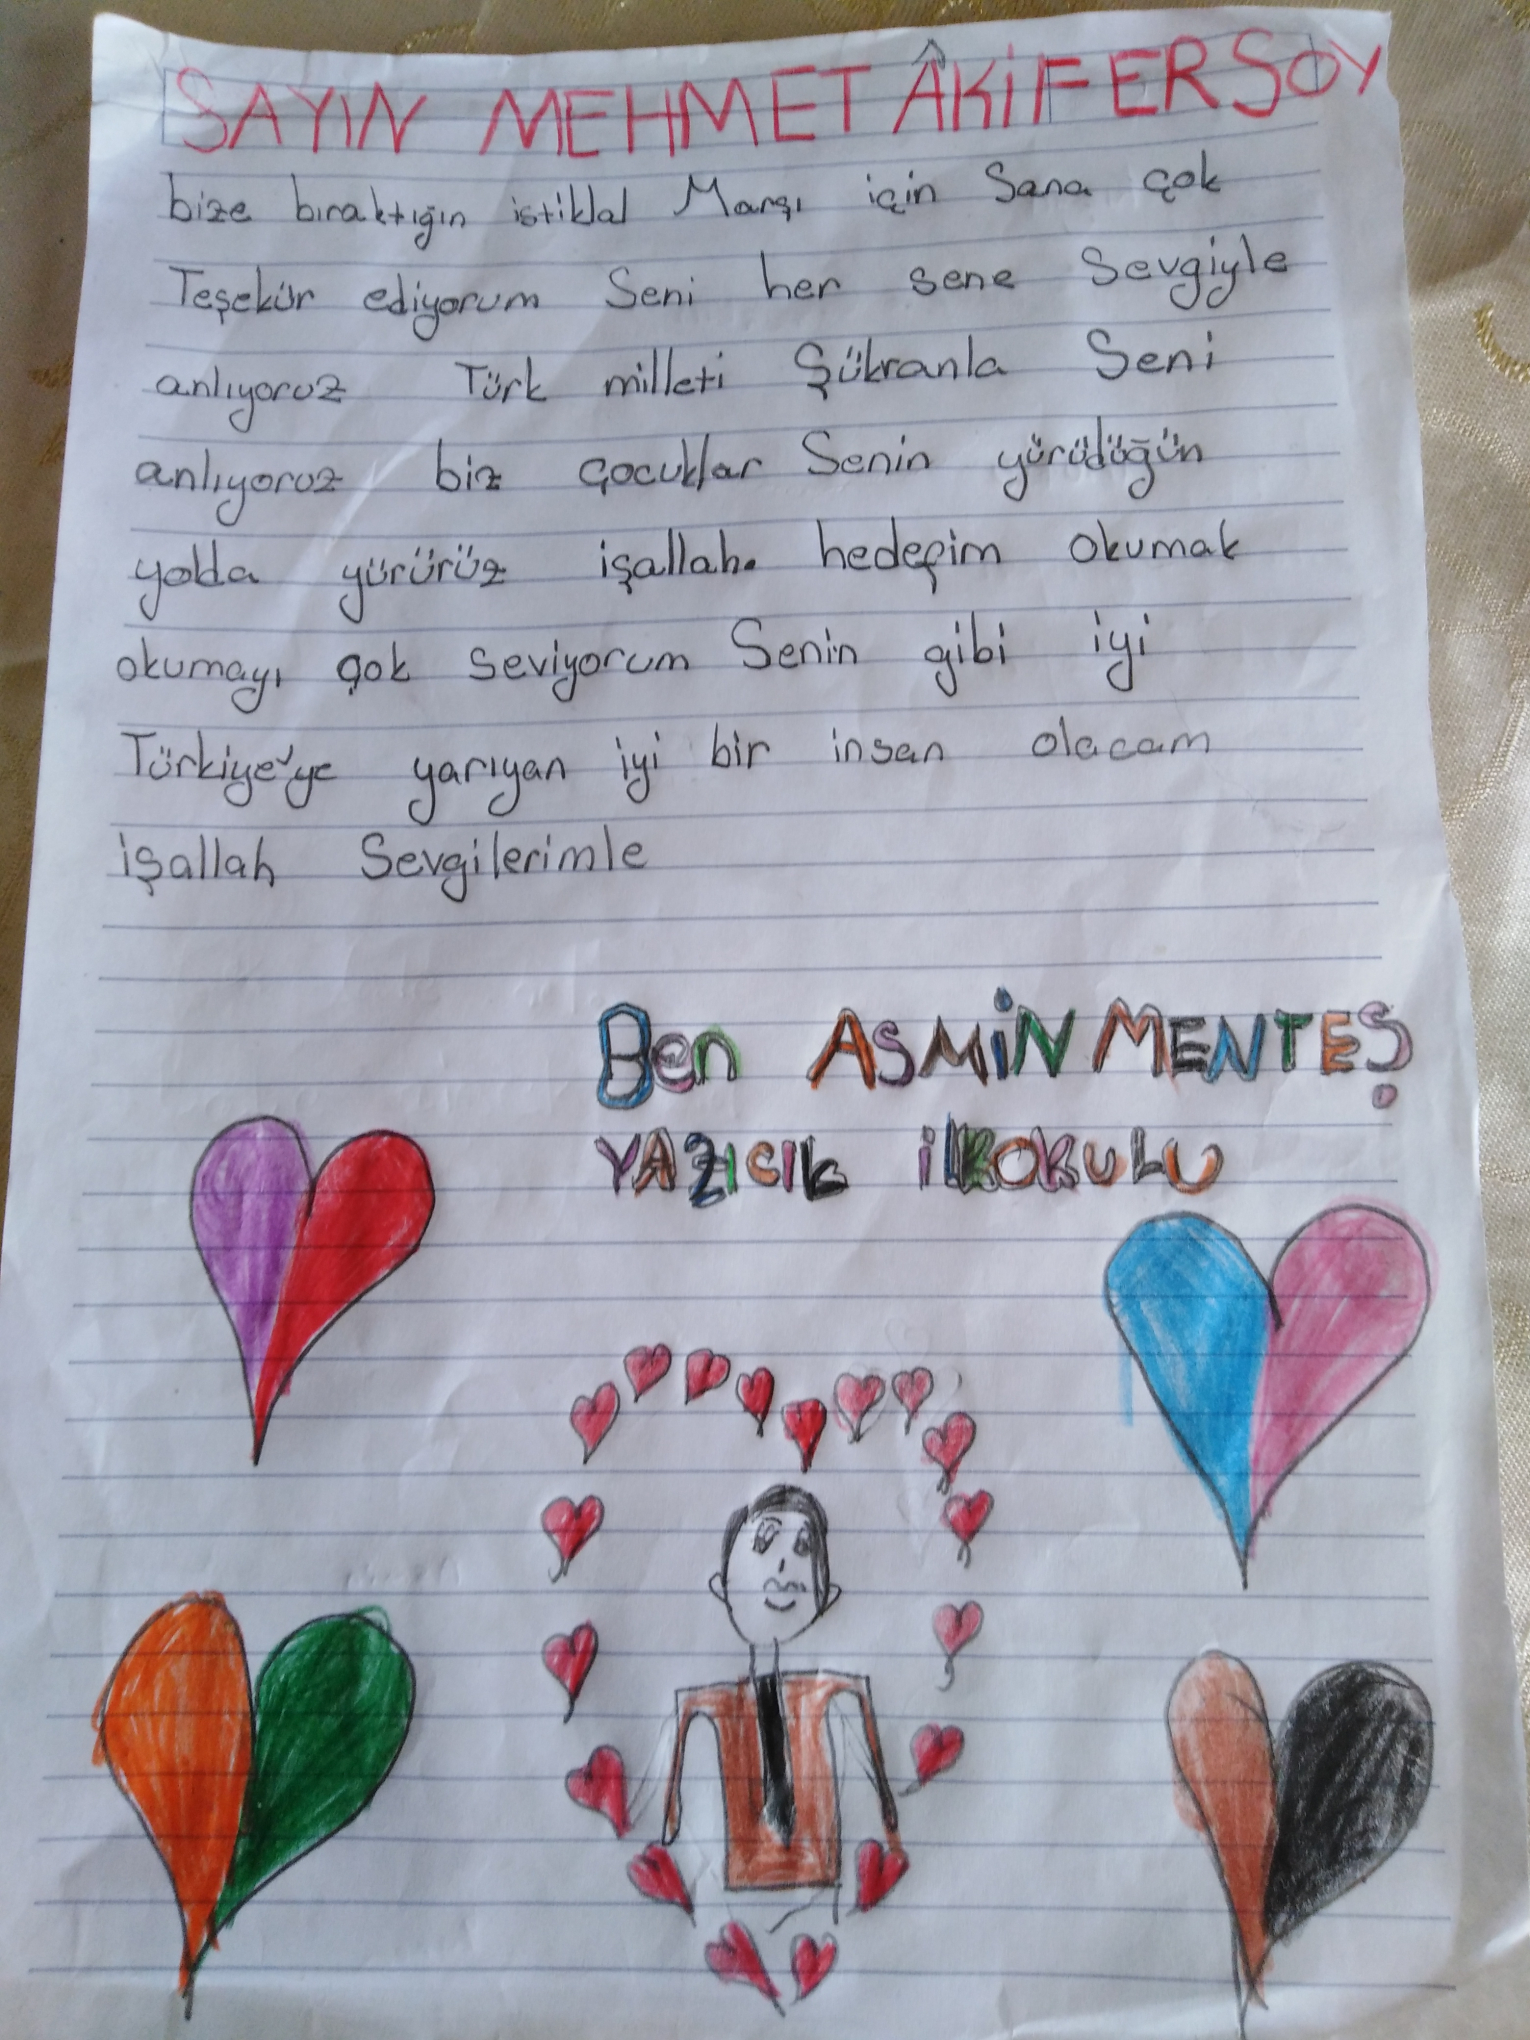 SAYIN MEHMET ÂKİF ERSOY
bize bıraktığın istiklal Marşı için Sana çok
Teşekür ediyorum Seni her sene Sevgiyle
anlıyoruz Türk milleti Şükranla Seni
anlıyoruz biz çocuklar Senin yürüdüğün
yolda yürürüz işallah. hedefim okumak
okumayı çok seviyorum Senin gibi iyi
Türkiye'ye yarıyan iyi bir insan olacam
işallah Sevgilerimle
Ben ASMİN MENTEŞ
YAZICIK İLKOKULU